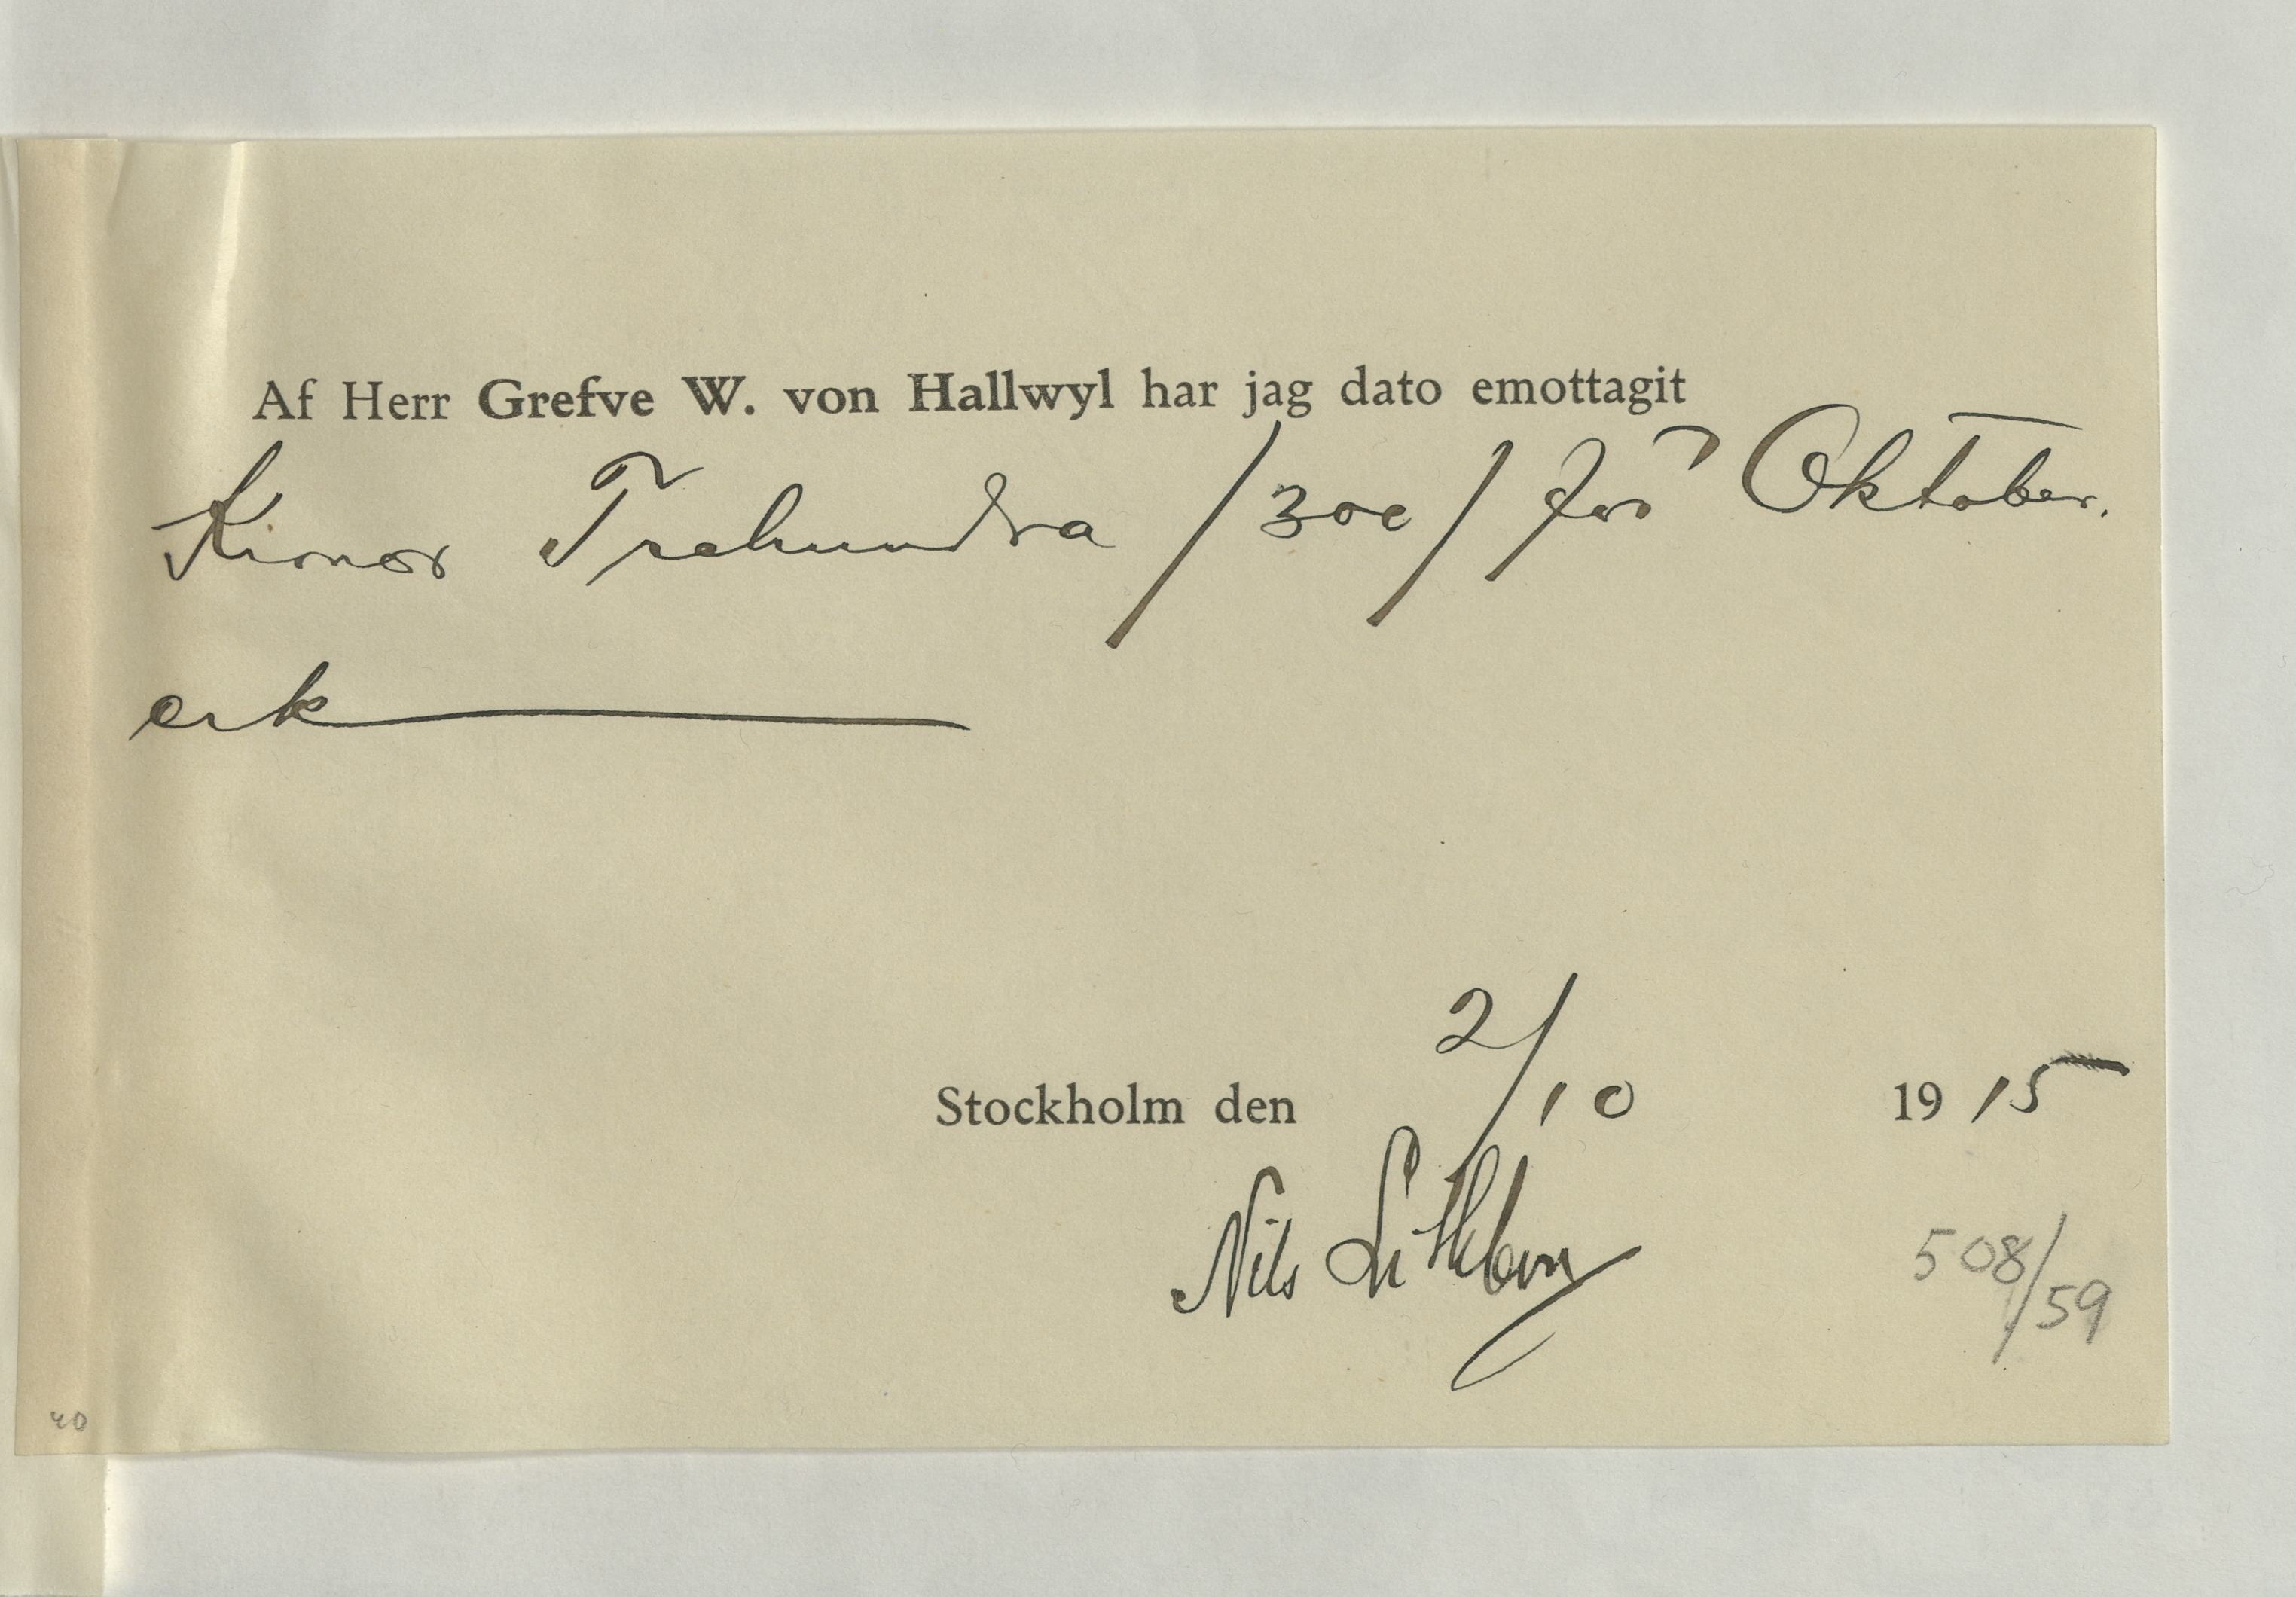 Af Herr Grefve W. von Hallwyl har jag dato emottagit
Kronor Trehundra /300/ för Oktober.
erk
2/10
Stockholm den 1915
Nils Lithberg
508/59
40